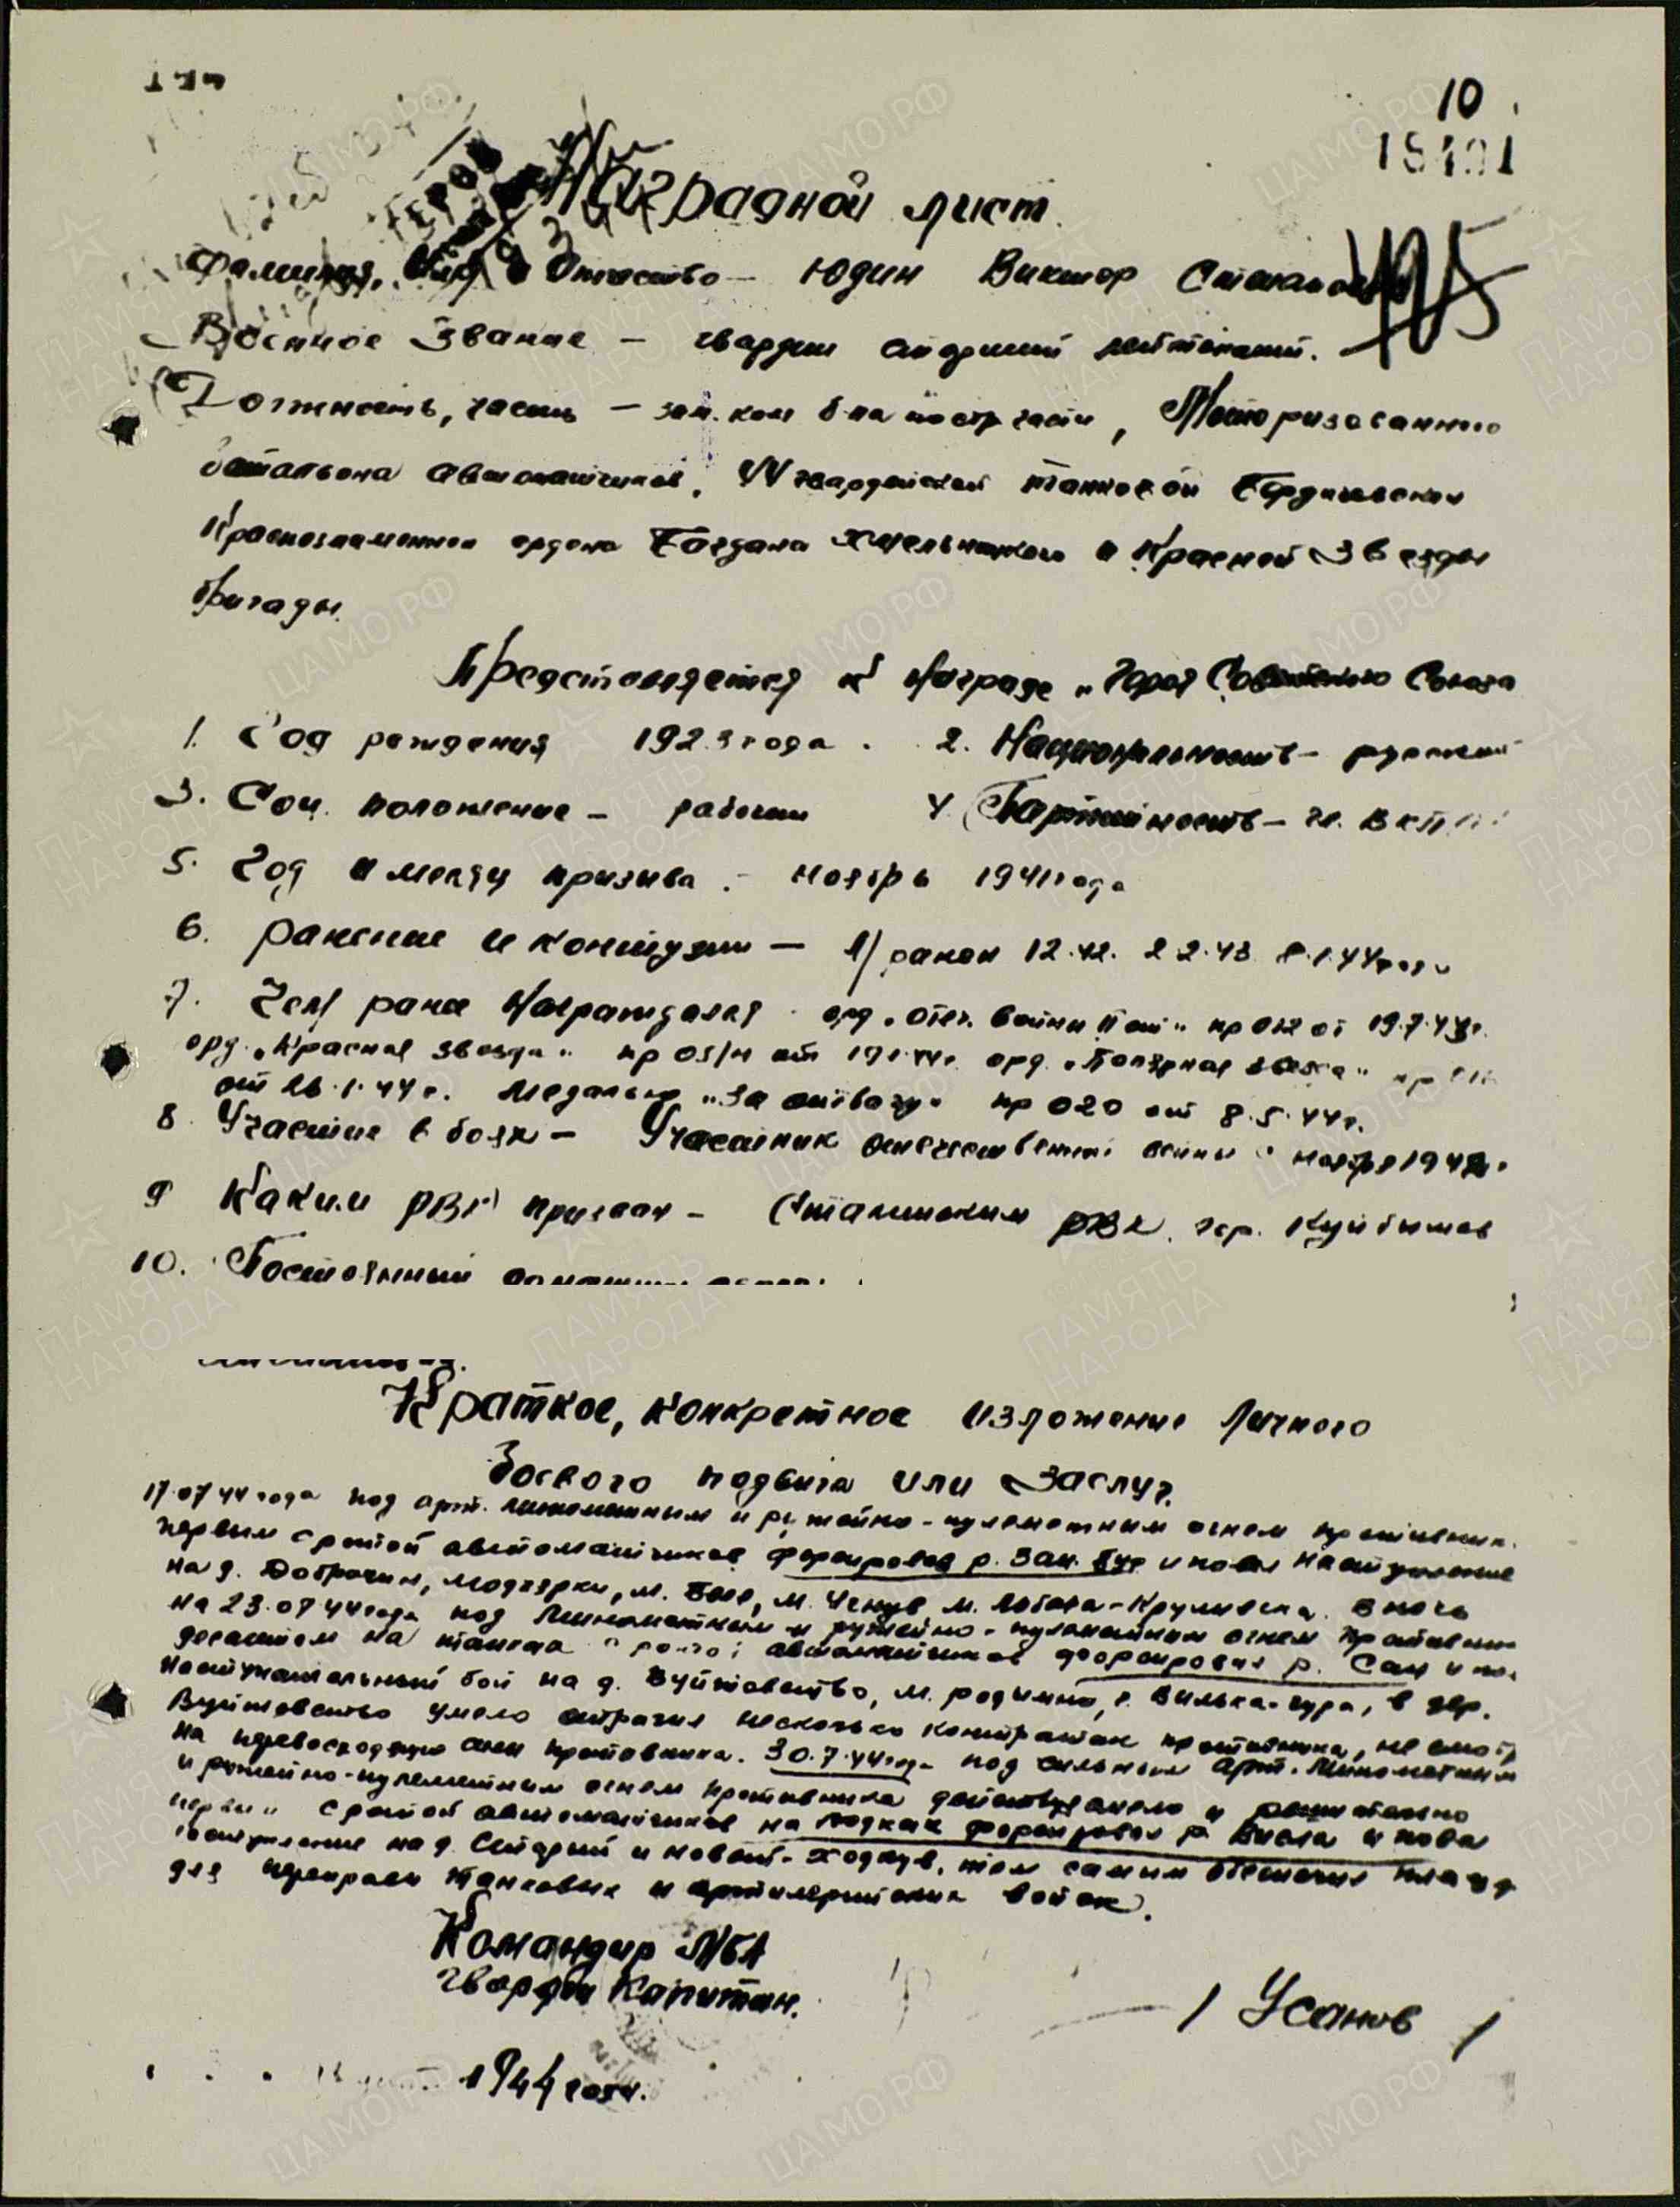 10
Наградной лист.
Фамилия, Имя и Отчество – Юдин Виктор
Военное звание – гвардии старший лейтенант.
Должность, часть – зам. ком б-на по стр части, Моторизованного
батальона автоматчиков, 44 гвардейской танковой Бердичевской
Краснознаменной ордена Богдана Хмельницкого и Красной Звезды
бригады.
Представляется к награде „Герой Советского Союза
1. Год рождения 1923 года. 2. Национальность – русский
3. Соц. положение – рабочий 4. Партийность – чл. ВКП
5. Год и месяц призыва. – ноябрь 1941 года
6. ранение и контузии – л/ранен 12.42. 2 2.43 8.1.44
7. Чем ранее награждался орд. „Отеч. войны II ст" пр 012 от 19.7.43г.
орд. „Красная звезда" пр 03/н от орд. „ звезда" пр
от 26.1.44г. медалью „За отвагу" пр 020 от 8.5.44г.
8. Участие в боях – Участник отечественной войны с ноября
9 Каким РВК призван – Сталинским РВК. гор. Куйбышев
10. Постоянный домашний адрес:
Краткое, конкретное изложение личного
боевого подвига или заслуг.
17.07 44 года под арт. минометным и ружейно-пулеметным огнем противник.
первым с ротой автоматчиков форсировал р. Зап. Буг и повел наступление
на д. Доброчин, м. м. м. Лобова-Крулевска. В ночь
на 23.07 44 года под минометным и ружейно-пулеметным огнем противни
десантом на танках с ротой автоматчиков форсировал р. Сан и по
наступательный бой на д. Вуйтовство, м. родымно, г. Вилька-гура, в дер.
Вуйтовство умело отразил несколько контратак противника, не смотр
на превосходящую силу противника. 30.7.44 года под сильным арт. минометным
и ружейно-пулеметным огнем противника действуя смело и решительно
первым с ротой автоматчиков на лодках форсировал р. Висла и повел
наступление на д. Старый и новый-Ходкув, тем самым обеспечил плацд
для переправы танковых и артиллерийских войск.
Командир МБА
гвардии Капитан.
/ Усанов /
1944 года.